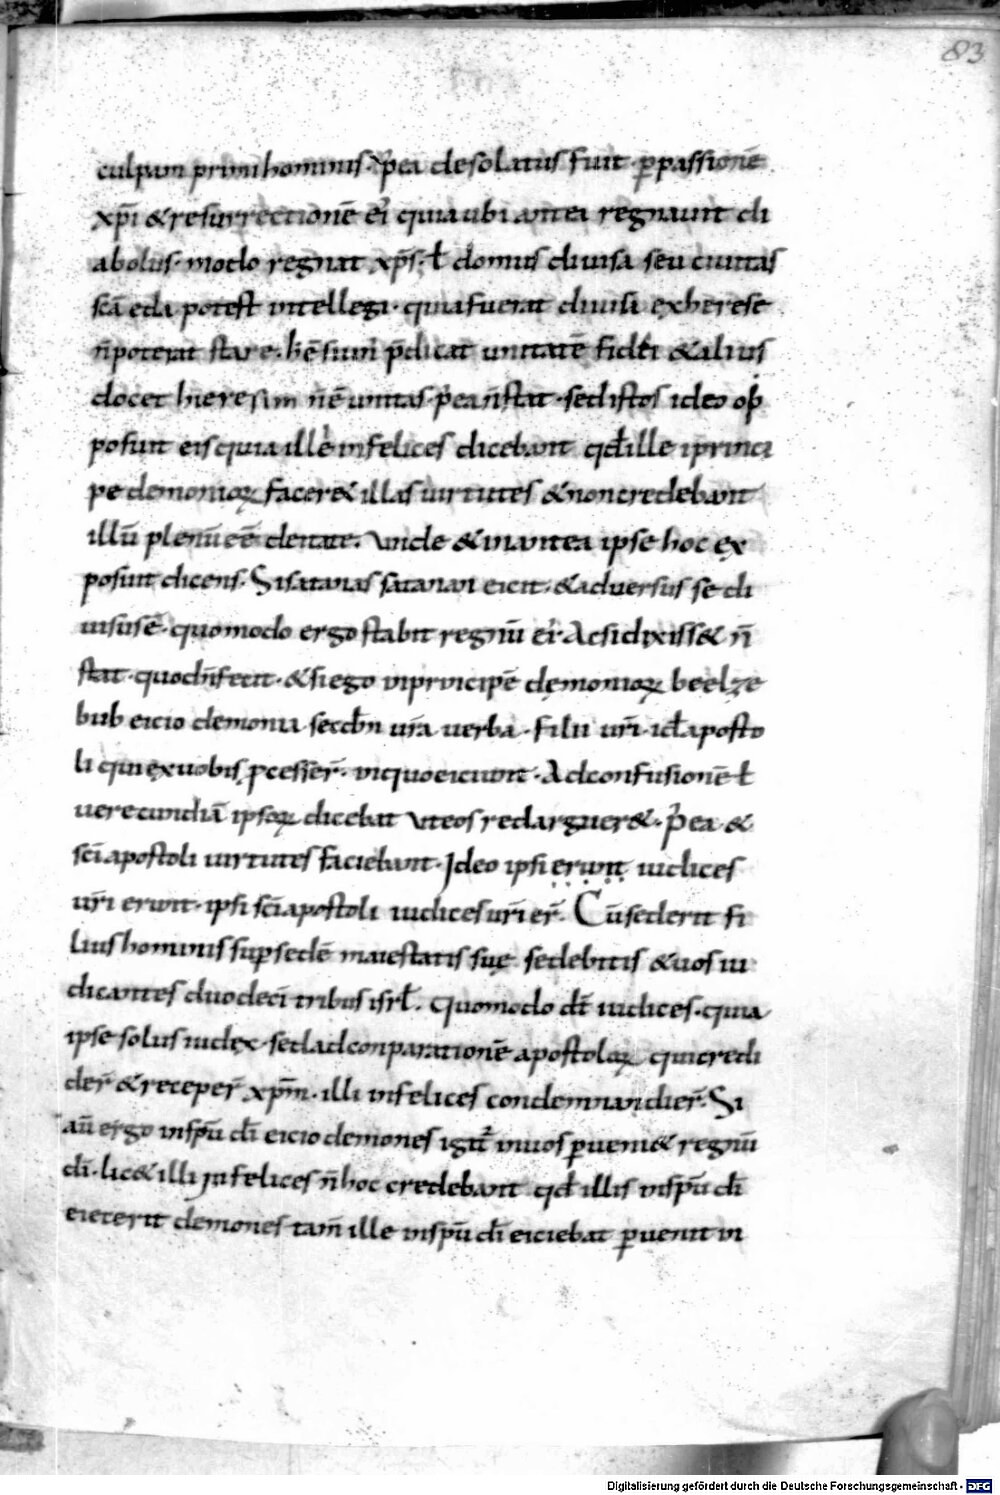 83
culpam primi hominis · p̄ea desolatus fuit · ꝑ passionē
xp̄i & resurrectionē ei᾽ quia ubi antea regnauit di
abolus · modo regnat xp̄s · ł domus diuisa seu ciuitas
potest intellegi · quia fuerat diuisa ex herese
n̄ poterat stare · p̄dicat unitatē fidei & alius
docet heresim n̄ ē unitas · p̄ea n̄ stat · sed istos ideo op
posuit eis quia ille infelices dicebant qđ ille i principe
pe demonioꝝ facer& illas uirtutes & non credebant
illū plenū eē deitate · Vnde & in antea ipse hoc ex
posuit dicens · Si satanas satanan eicit · & aduersus se di
uisus ē · quomodo ergo stabit regnū ei᾽ Ac si dixiss& n̄
stat · quod n̄ fecit · & si ego in principe demonioꝝ beelze
bub eicio demonia secdm̄ ur̄a uerba · filii ur̄i · id ÷ aposto
li qui ex uobis ꝓcesser̄ · in quo eiciunt · Ad confusionē ł
uerecundiā ipsoꝝ dicebat ut eos redarguer& · p̄ea &
sc̄i apostoli uirtutes faciebant · Ideo ipsi erunt iudices
ur̄i erunt · ipsi sc̄i apostoli iudices ur̄i er̄ · Cū sederit fi
lius hominis sup sedē maiestatis suę sedebitis & uos iu
dicantes duodecī tribus isrł · Quomodo dt̄ iudices · quia
ipse solus iudex · sed ad conparationē apostoloꝝ qui credi
der̄ & receper̄ xp̄m · illi infelices condemnandi er̄ · Si
aū ergo in sp̄u dī eicio demones igit᾽ in uos ꝑueni& regnū
dī · lic& illi infelices n̄ hoc credebant qđ illis in sp̄u dī
eiecerit demones tam̄ ille in sp̄u dī eiciebat ꝑuenit in
Digitalisierung gefördert durch die Deutsche Forschungsgemeinschaft - DFG